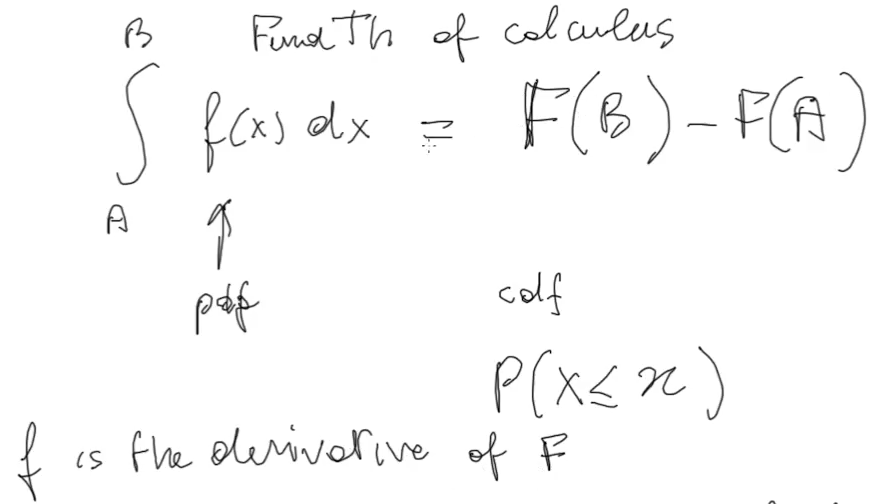 Fund Th of calculus
∫_A^B f(x) dx = F(B) - F(A)
↑
pdf
cdf
P(X ≤ x)
f is the derivative of F